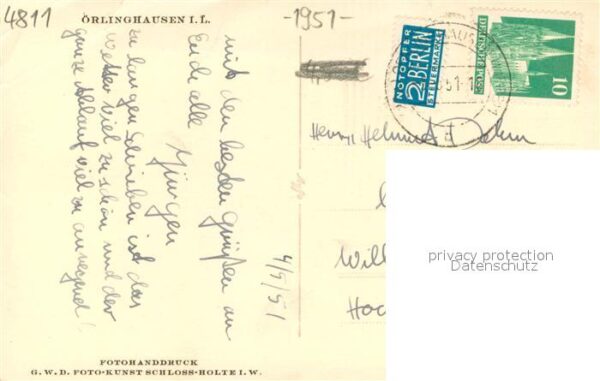 4811
ÖRLINGHAUSEN I.L.
-1951-
mit den besten Grüßen an
Euch alle
Jürgen
zu langen Schreiben ist das
Wetter viel zu schön und der
ganze Ablauf viel zu anregend!
4/5/51
NOTOPFER
2 BERLIN
STEUERMARKE
DEUTSCHE POST
10
51-1
Herrn Helmut Dohm
Will
Hoc
privacy protection
Datenschutz
FOTOHANDDRUCK
G.W.D. FOTO-KUNST SCHLOSS-HOLTE I.W.